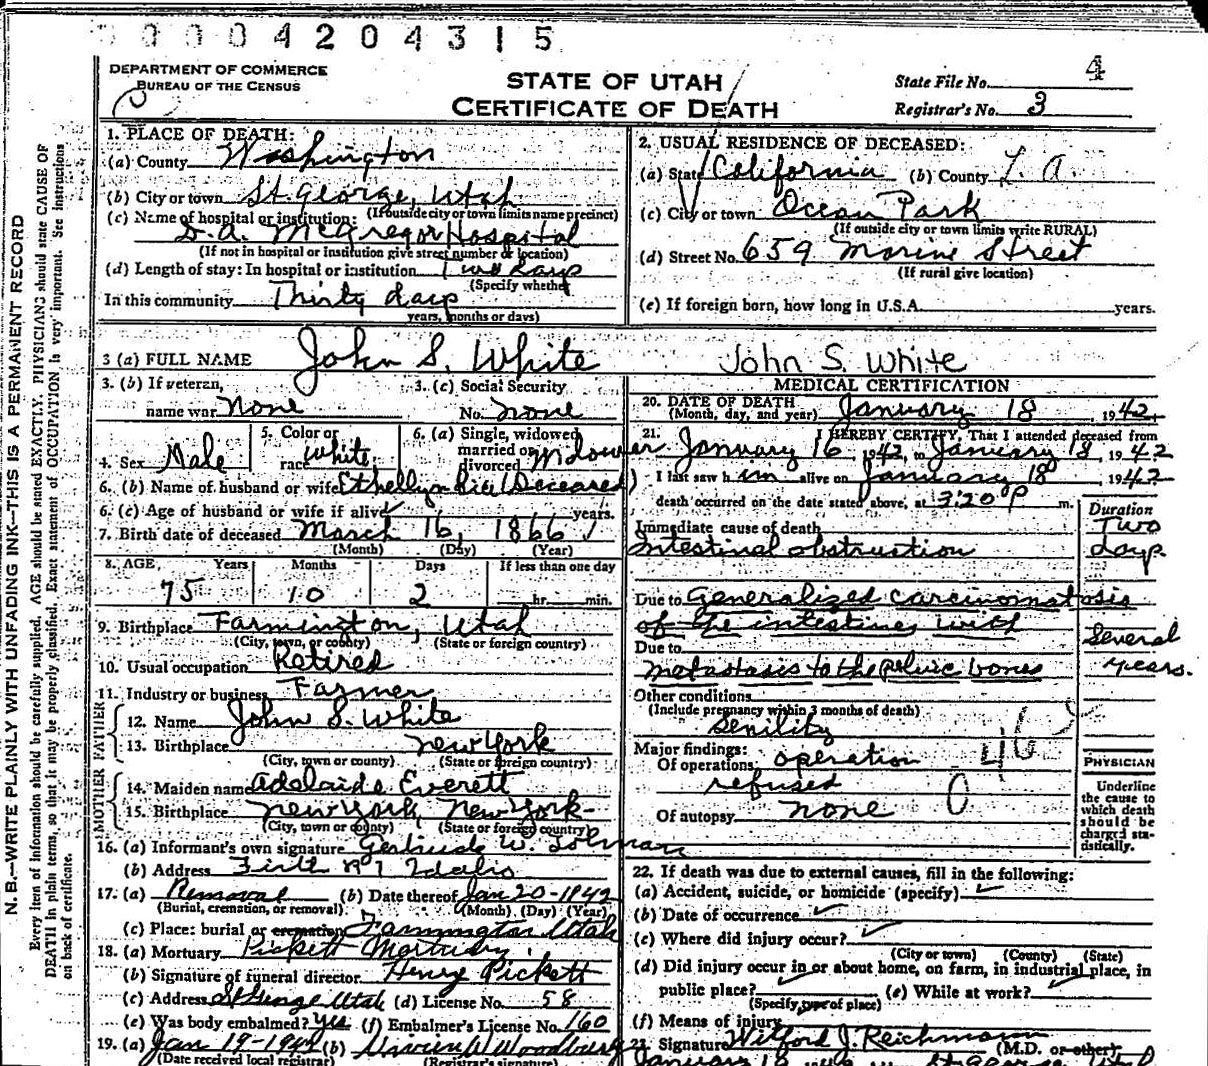 0004204315
DEPARTMENT OF COMMERCE
BUREAU OF THE CENSUS
STATE OF UTAH
CERTIFICATE OF DEATH
State File No. 4
Registrar's No. 3
1. PLACE OF DEATH:
(a) County Washington
(b) City or town St. George, Utah
(If outside city or town limits name precinct)
(c) Name of hospital or institution:
D. A. McGregor Hospital
(If not in hospital or institution give street number or location)
(d) Length of stay: In hospital or institution Two days
(Specify whether
In this community Thirty days
years, months or days)
2. USUAL RESIDENCE OF DECEASED:
(a) State California (b) County L. A.
(c) City or town Ocean Park
(If outside city or town limits write RURAL)
(d) Street No. 659 Marine Street
(If rural give location)
(e) If foreign born, how long in U.S.A. years.
3 (a) FULL NAME John S. White John S. White
3. (b) If veteran, name war none
3. (c) Social Security No. none
4. Sex Male
5. Color or race White
6. (a) Single, widowed married or divorced Widower
6. (b) Name of husband or wife (Deceased)
6. (c) Age of husband or wife if alive years.
7. Birth date of deceased March 16, 1866
(Month) (Day) (Year)
8. AGE Years Months Days If less than one day
75 10 2 hr. min.
9. Birthplace Farmington, Utah
(City, town, or county) (State or foreign country)
10. Usual occupation Retired
11. Industry or business Farmer
FATHER
12. Name John S. White
13. Birthplace New York
(City, town or county) (State or foreign country)
MOTHER
14. Maiden name Adelaide Everett
15. Birthplace New York, New York
(City, town or county) (State or foreign country)
16. (a) Informant's own signature Gertrude W.
(b) Address Firth R 1 Idaho
17. (a) Removal (b) Date thereof Jan 20-1942
(Burial, cremation, or removal) (Month) (Day) (Year)
(c) Place: burial or cremation Farmington Utah
18. (a) Mortuary Pickett Mortuary
(b) Signature of funeral director Henry Pickett
(c) Address St George Utah (d) License No. 58
(e) Was body embalmed? Yes (f) Embalmer's License No. 160
19. (a) Jan 19-1942 (b) Woodbury
(Date received local registrar) (Registrar's signature)
MEDICAL CERTIFICATION
20. DATE OF DEATH
(Month, day, and year) January 18 1942
21. I HEREBY CERTIFY, That I attended deceased from
January 16 1942, to January 18, 1942
I last saw him alive on January 18 1942
death occurred on the date stated above, at 3:20 P m.
Duration
Immediate cause of death
Intestinal obstruction
Two days
Due to Generalized carcinomatosis
of the intestines with
Due to
metastasis to the pelvic bones
Several years.
Other conditions
(Include pregnancy within 3 months of death)
Senility
Major findings:
Of operations operation
refused
46
Of autopsy none 0
PHYSICIAN
Underline
the cause to
which death
should be
charged sta-
tistically.
22. If death was due to external causes, fill in the following:
(a) Accident, suicide, or homicide (specify)
(b) Date of occurrence
(c) Where did injury occur?
(City or town) (County) (State)
(d) Did injury occur in or about home, on farm, in industrial place, in
public place? (e) While at work?
(Specify type of place)
(f) Means of injury
23. Signature Wilford J. Reichmann
(M.D. or other)
January 18
N. B.—WRITE PLAINLY WITH UNFADING INK—THIS IS A PERMANENT RECORD
Every item of information should be carefully supplied. AGE should be stated EXACTLY. PHYSICIANS should state CAUSE OF
DEATH in plain terms, so that it may be properly classified. Exact statement of OCCUPATION is very important. See instructions
on back of certificate.